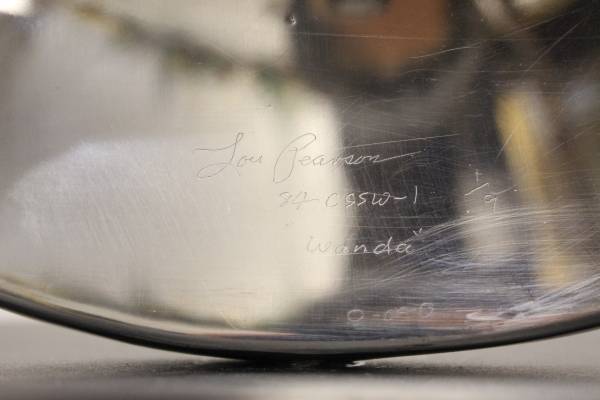 Lou Pearson
84 CSSW-1 1/9
"Wanda"